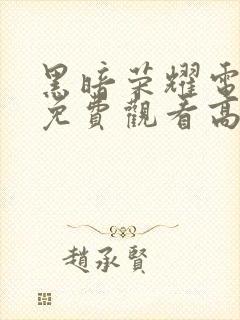 黑暗荣耀電
免費觀看高
趙承賢